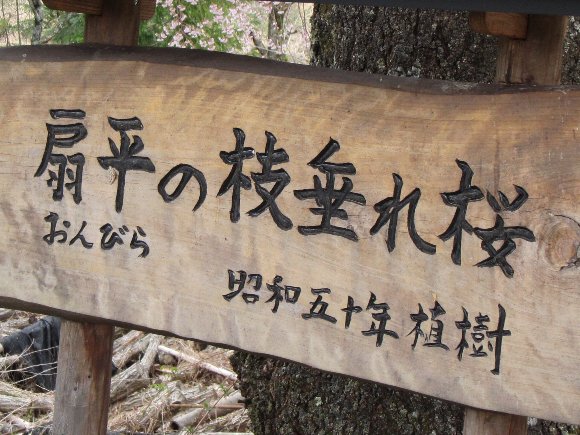 扇平の枝垂れ桜
おんびら
昭和五十年植樹